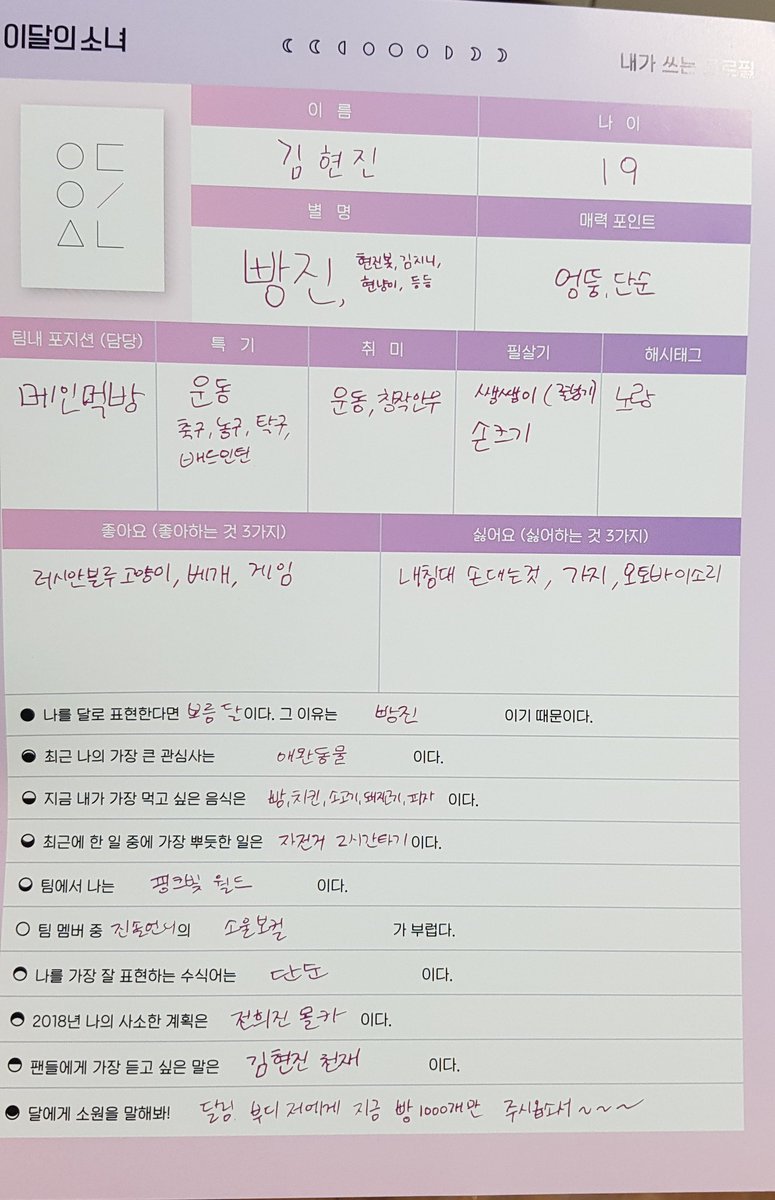 이달의 소녀
내가 쓰는 프로필
이 름
나 이
김현진
19
별 명
매력 포인트
빵진, 현진봇, 김지니,
현냥이, 등등
엉뚱, 단순
팀내 포지션 (담당)
특 기
취 미
필살기
해시태그
메인먹방
운동
축구, 농구, 탁구,
배드민턴
운동, 창작안무
쌩쌩이 (줄넘기)
손크기
노랑
좋아요 (좋아하는 것 3가지)
싫어요 (싫어하는 것 3가지)
러시안블루 고양이, 베개, 게임
내침대 손대는것, 가지, 오토바이소리
나를 달로 표현한다면 보름달이다. 그 이유는 빵진 이기 때문이다.
최근 나의 가장 큰 관심사는 애완동물 이다.
지금 내가 가장 먹고 싶은 음식은 빵, 치킨, 소고기, 돼지고기, 피자 이다.
최근에 한 일 중에 가장 뿌듯한 일은 자전거 2시간타기 이다.
팀에서 나는 핑크빛 월드 이다.
팀 멤버 중 진솔언니의 소울보컬 가 부럽다.
나를 가장 잘 표현하는 수식어는 단순 이다.
2018년 나의 사소한 계획은 전희진 몰카 이다.
팬들에게 가장 듣고 싶은 말은 김현진 천재 이다.
달에게 소원을 말해봐! 달님. 부디 저에게 지금 빵 1000개만 주시옵소서~~~